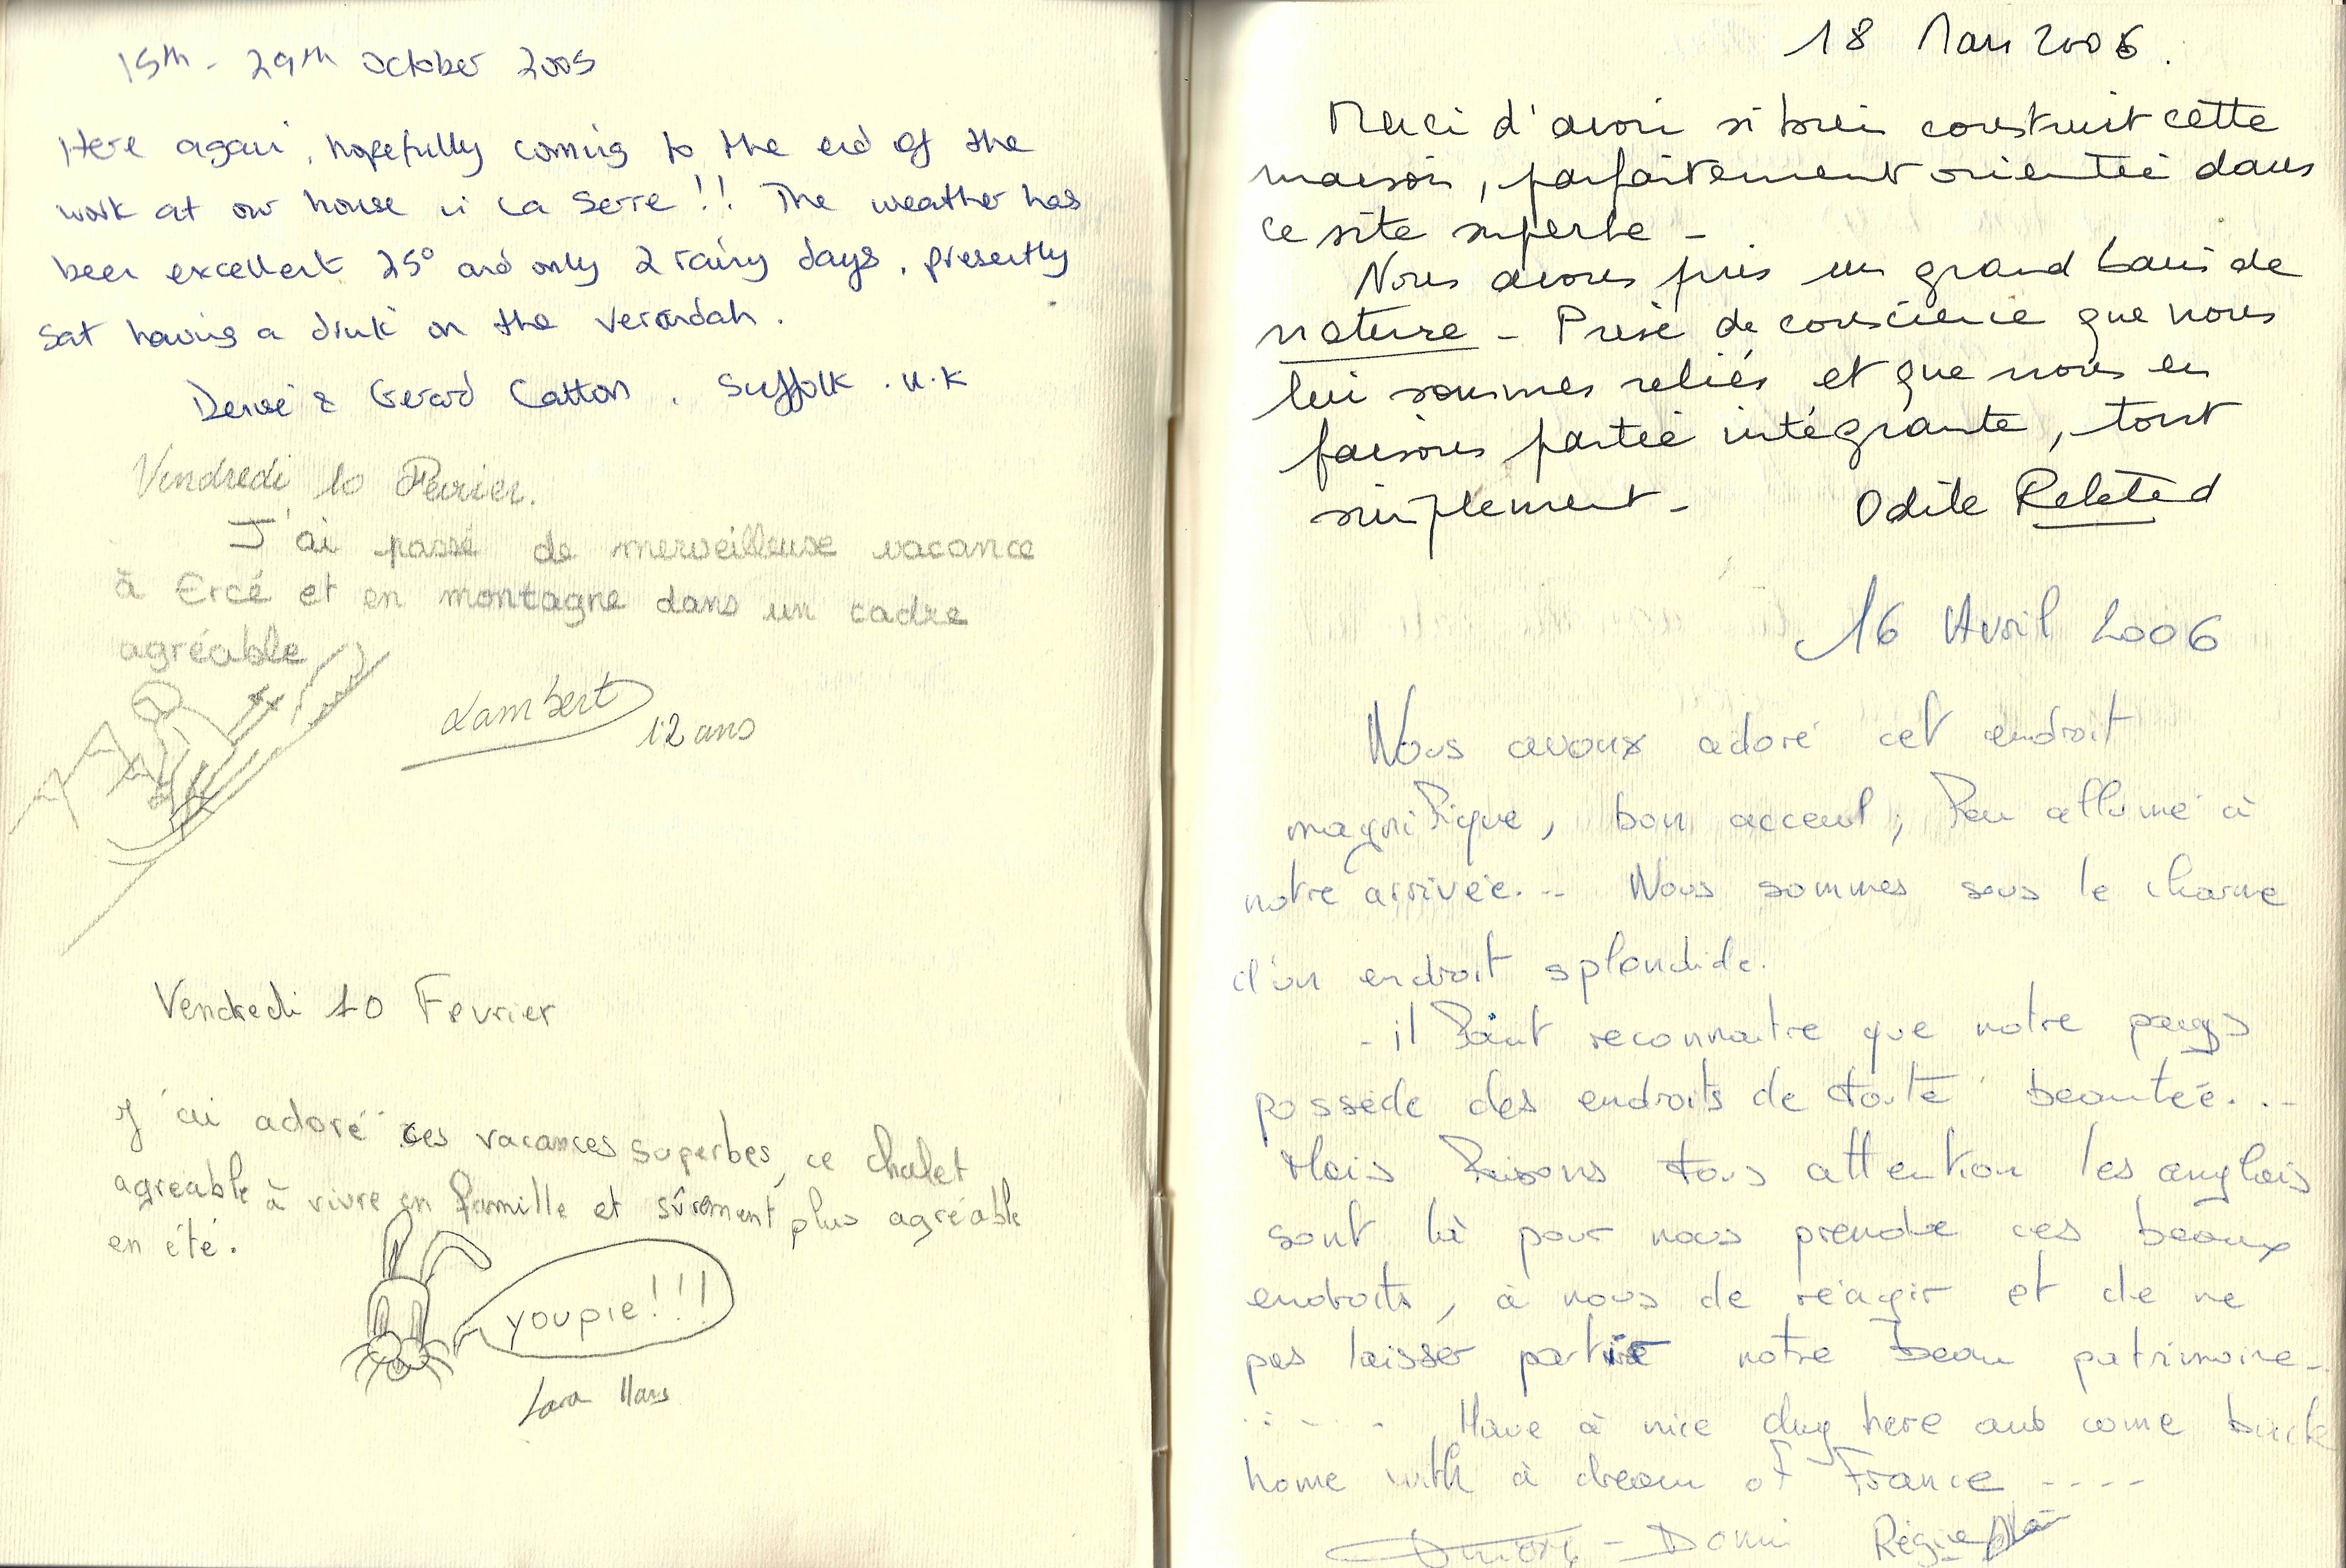 15th - 29th October 2005
Here again, hopefully coming to the end of the
work at our house in La Serre!! The weather has
been excellent 25° and only 2 rainy days, presently
sat having a drink on the verandah.
& Gerard Catton, Suffolk. U.K
Vendredi 10 Février.
J'ai passé de merveilleuse vacance
à Ercé et en montagne dans un cadre
agréable
Lambert
12 ans
Vendredi 10 Fevrier
J'ai adoré ces vacances superbes, ce chalet
agreable à vivre en famille et sûrement plus agréable
en été.
youpie!!!
Lara
18 Mars 2006.
Merci d'avoir si bien construit cette
maison, parfaitement orientée dans
ce site superbe -
Nous avons pris un grand bain de
nature - Prise de conscience que nous
lui sommes reliés et que nous en
faisons partie intégrante, tout
simplement - Odile
16 Avril 2006
Nous avoux adoré cet endroit
magnifique, bon acceuil, feu allumé à
notre arrivée... Nous sommes sous le charme
d'un endroit splendide.
- il faut reconnaitre que notre pays
possède des endroits de toute beautée...
Mais faisons tous attention les anglais
sont là pour nous prendre ces beaux
endroits, à nous de réagir et de ne
pas laisser partir notre beau patrimoine-
.... Have à nice day here and come back
home with à dream of France ----
- Domi Régine